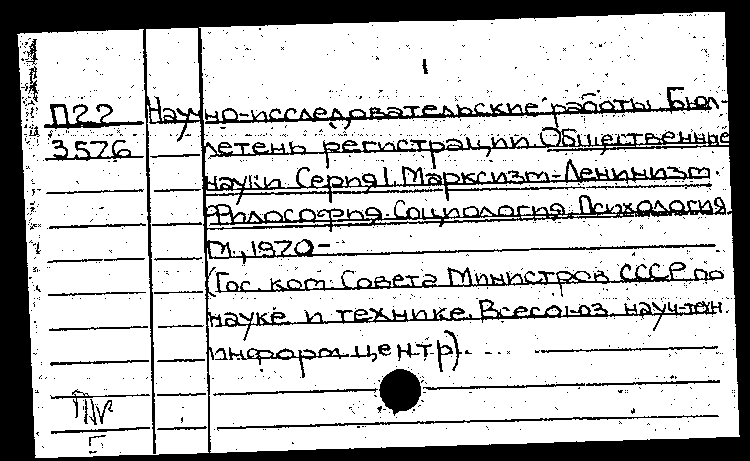 1
П22 Научно-исследовательские работы. Бюл-
3576 летень регистрации. Общественные
науки. Серия 1. Марксизм-Ленинизм.
Философия. Социология. Психология.
М., 1970-
(Гос. ком. Совета Министров СССР по
науке и технике. Всесоюз. науч-техн.
информ. центр). ...
5